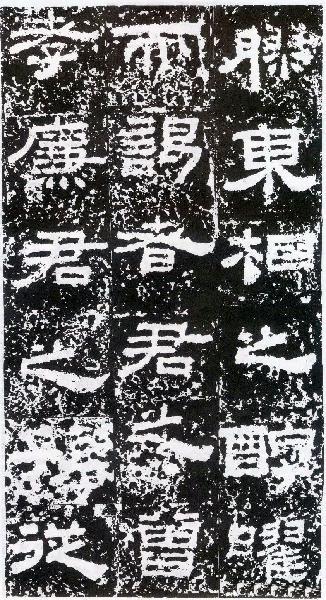 膠東相之醇曜
而謁者君之曾
孝廉君之孫從